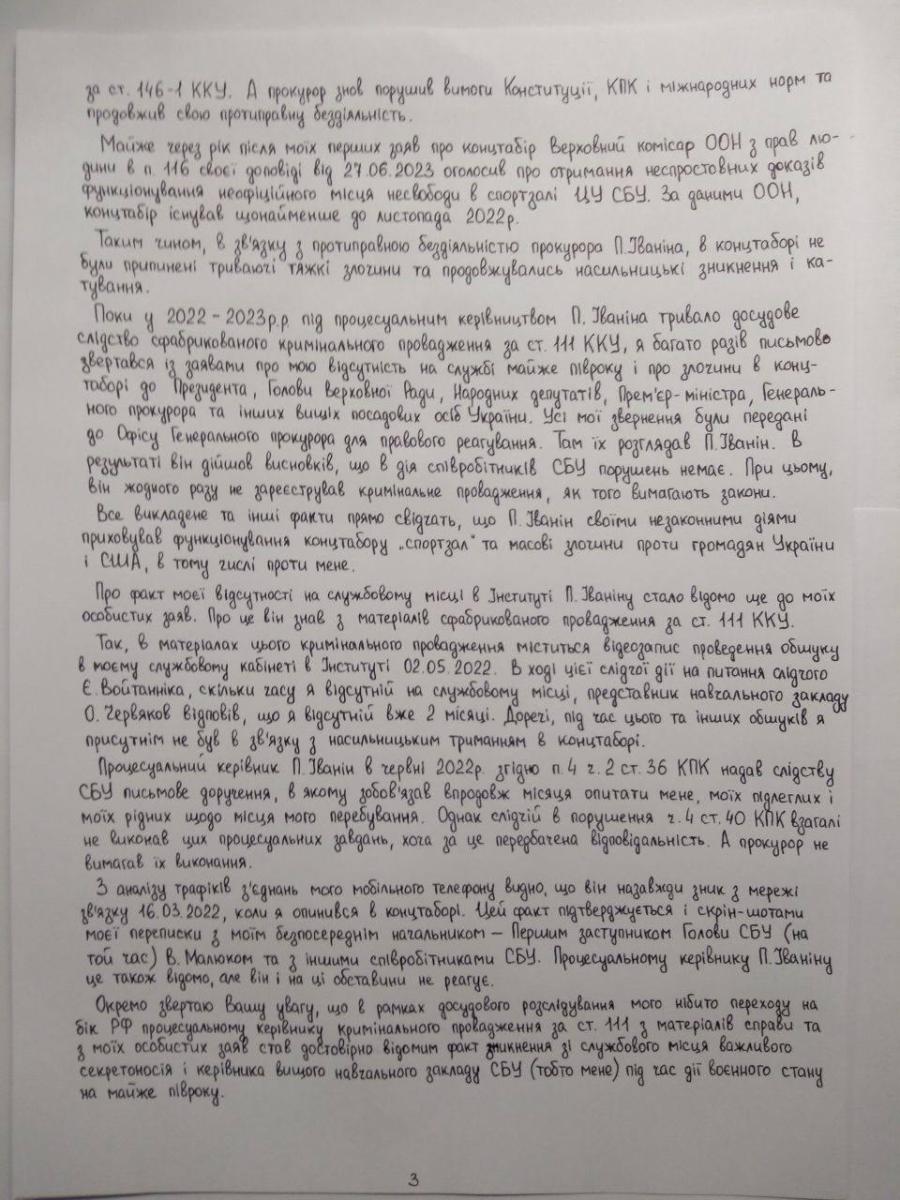 за ст. 146-1 ККУ. А прокурор знов порушив вимоги Конституції, КПК і міжнародних норм та
продовжив свою протиправну бездіяльність.
Майже через рік після моїх перших заяв про концтабір Верховний комісар ООН з прав лю-
дини в п. 116 своєї доповіді від 27.06.2023 оголосив про отримання неспростовних доказів
функціонування неофіційного місця несвободи в спортзалі ЦУ СБУ. За даними ООН,
концтабір існував щонайменше до листопада 2022р.
Таким чином, в зв'язку з протиправною бездіяльністю прокурора П.Іваніна, в концтаборі не
були припинені триваючі тяжкі злочини та продовжувались насильницькі зникнення і ка-
тування.
Поки у 2022-2023р.р. під процесуальним керівництвом П. Іваніна тривало досудове
слідство сфабрикованого кримінального провадження за ст. 111 ККУ, я багато разів письмово
звертався із заявами про мою відсутність на службі майже півроку і про злочини в конц-
таборі до Президента, Голови Верховної Ради, Народних депутатів, Прем'єр-міністра, Генераль-
ного прокурора та інших вищіх посадових осіб України. Усі мої звернення були передані
до Офісу Генерального прокурора для правового реагування. Там їх розглядав П.Іванін. В
результаті він дійшов висновків, що в дія співробітників СБУ порушень немає. При цьому,
він жодного разу не зареєстрував кримінальне провадження, як того вимагають закони.
Все викладене та інші факти прямо свідчать, що П.Іванін своїми незаконними діями
приховував функціонування концтабору „спортзал" та масові злочини проти громадян України
і США, в тому числі проти мене.
Про факт моєї відсутності на службовому місці в Інституті П.Іваніну стало відомо ще до моїх
особистих заяв. Про це він знав з матеріалів сфабрикованого провадження за ст. 111 ККУ.
Так, в матеріалах цього кримінального провадження міститься відеозапис проведення обшуку
в моєму службовому кабінеті в Інституті 02.05.2022. В ході цієї слідчої дії на питання слідчого
Є.Войтанніка, скільки часу я відсутній на службовому місці, представник навчального закладу
О.Червяков відповів, що я відсутній вже 2 місяці. Доречі, під час цього та інших обшуків я
присутнім не був в зв'язку з насильницьким триманням в концтаборі.
Процесуальний керівник П.Іванін в червні 2022р. згідно п.4 ч.2 ст.36 КПК надав слідству
СБУ письмове доручення, в якому зобов'язав впродовж місяця опитати мене, моїх підлеглих і
моїх рідних щодо місця мого перебування. Однак слідчій в порушення ч.4 ст.40 КПК взагалі
не виконав цих процесуальних завдань, хоча за це передбачена відповідальність. А прокурор не
вимагав їх виконання.
З аналізу трафіків з'єднань мого мобільного телефону видно, що він назавжди зник з мережі
зв'язку 16.03.2022, коли я опинився в концтаборі. Цей факт підтверджується і скрін-шотами
моєї переписки з моїм безпосереднім начальником – Першим заступником Голови СБУ (на
той час) В.Малюком та з іншими співробітниками СБУ. Процесуальному керівнику П.Іваніну
це також відомо, але він і на ці обставини не реагує.
Окремо звертаю Вашу увагу, що в рамках досудового розслідування мого нібито переходу на
бік РФ процесуальному керівнику кримінального провадження за ст. 111 з матеріалів справи та
з моїх особистих заяв став достовірно відомим факт зникнення зі службового місця важливого
секретоносія і керівника вищого навчального закладу СБУ (тобто мене) під час дії воєнного стану
на майже півроку.
3